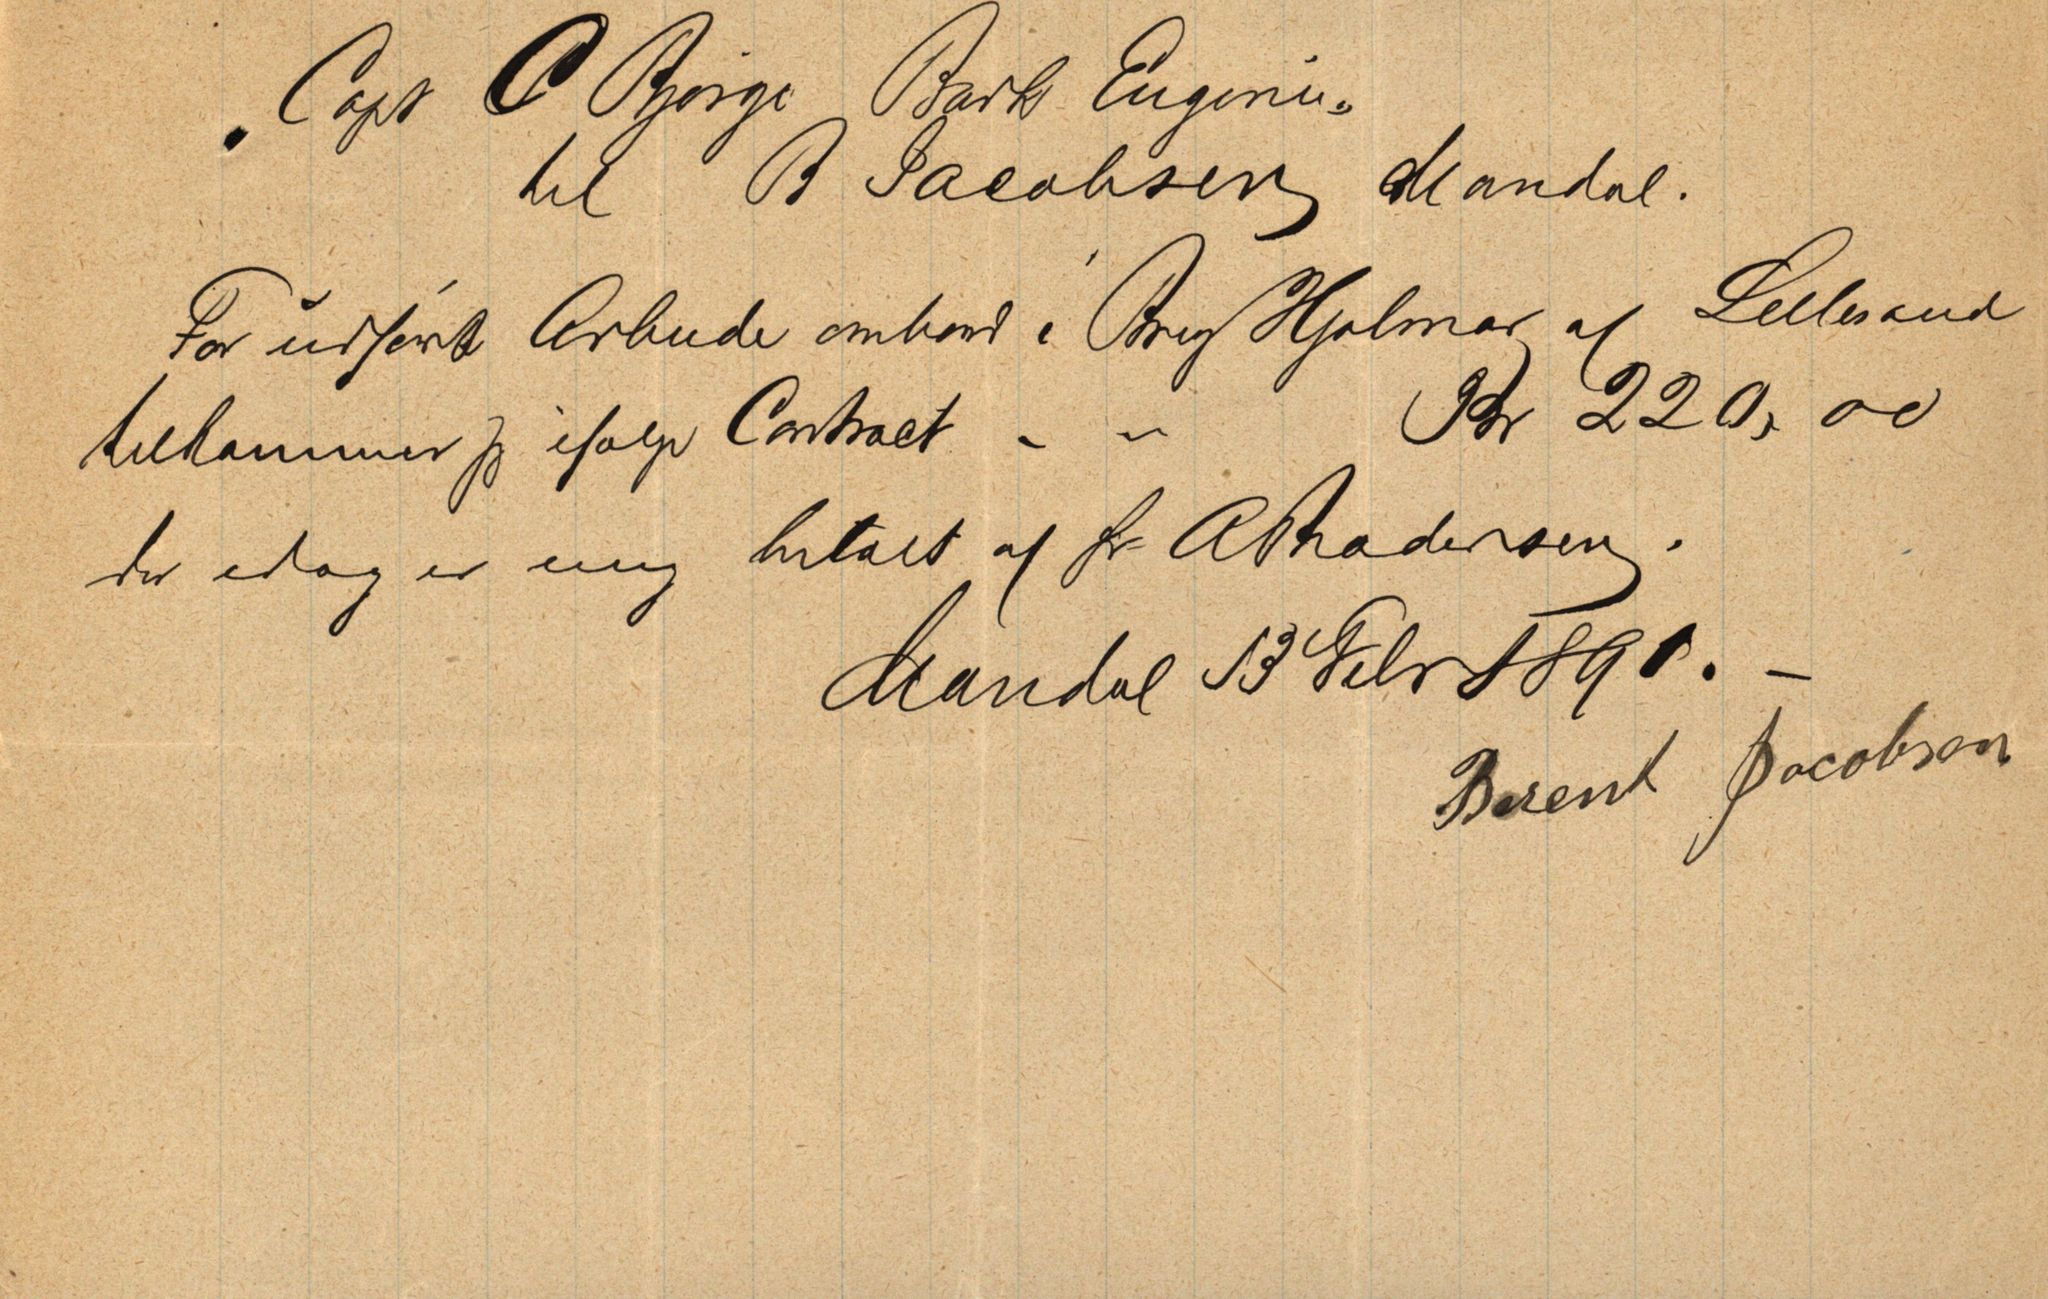 Capt C Bjørge Bark Eugenie
til B Jacobsen Mandal.
For udført Arbeide ombord i Brig Hjalmar af Lillesand
tilkommer jeg ifølge Contract - " Kr 220,00
der idag er mig betalt af hr A Andersen.
Mandal 13 Febr 1891. -
Berent Jacobsen